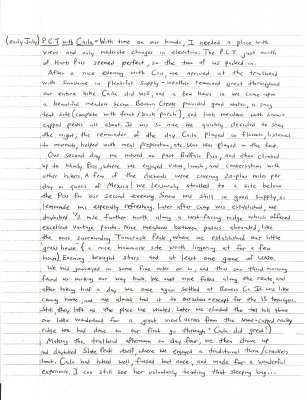 (early July) P.C.T. with Carla - With time on our hands, I needed a place with
views and only moderate changes in elevation. The P.C.T. just north
of Harts Pass seemed perfect, so the two of us packed in.
After a nice evening with Cris, we arrived at the trailhead
with sunshine in plentiful supply - weather remained great throughout
our entire hike. Carla did well, and a few hours in we came upon
a beautiful meadow scene. Benson Creek provided good water, a snug
tent site (complete with front/back porch), and lush meadow with snow-
capped peaks all about. It was so nice we quickly decided to stay
the night; the remainder of the day Carla played in flowers, listened
to marmots, helped with meal preparation, etc. Uno was played in the tent.
Our second day we moved on past Buffalo Pass, and then climbed
up to Windy Pass, where we enjoyed views, lunch, and conversation with
other hikers. A few of the diehards were covering 20 plus miles per
day in quest of Mexico! We leisurely strolled to a site below
the Pass for our second evening. Snow was still in good supply, so
lemonade was especially refreshing. Later after camp was established, we
dayhiked 1/2 mile further north along a west-facing ridge which offered
excellent vantage points. Nice meadows between passes abounded, like
the ones surrounding Tamarack Peak, where we established our little
grass house (a nice homemade site worth lingering at for a few
hours). Evening brought stars and at least one game of UNO.
We had journeyed in some five miles or so, and thus our third morning
found us working our way back. We met nice folks along the route and
after hiking half a day we once again settled at Benson Cr. It was like
coming home, and we almost had it to ourselves - except for the 15 teenagers.
Still, they left us the place we wanted. Later we climbed the talus above
our little wonderland for a great view (across from the snow-capped rocky
ridge we had done on our first go through - Carla did great!)
Making the trailhead afternoon on day four, we then drove up
and dayhiked Slate Peak itself, where we enjoyed a traditional tuna/crackers
lunch. Carla had hiked well, fussed but once, and made for a wonderful
experience. I can still see her voluntarily toting that sleeping bag...